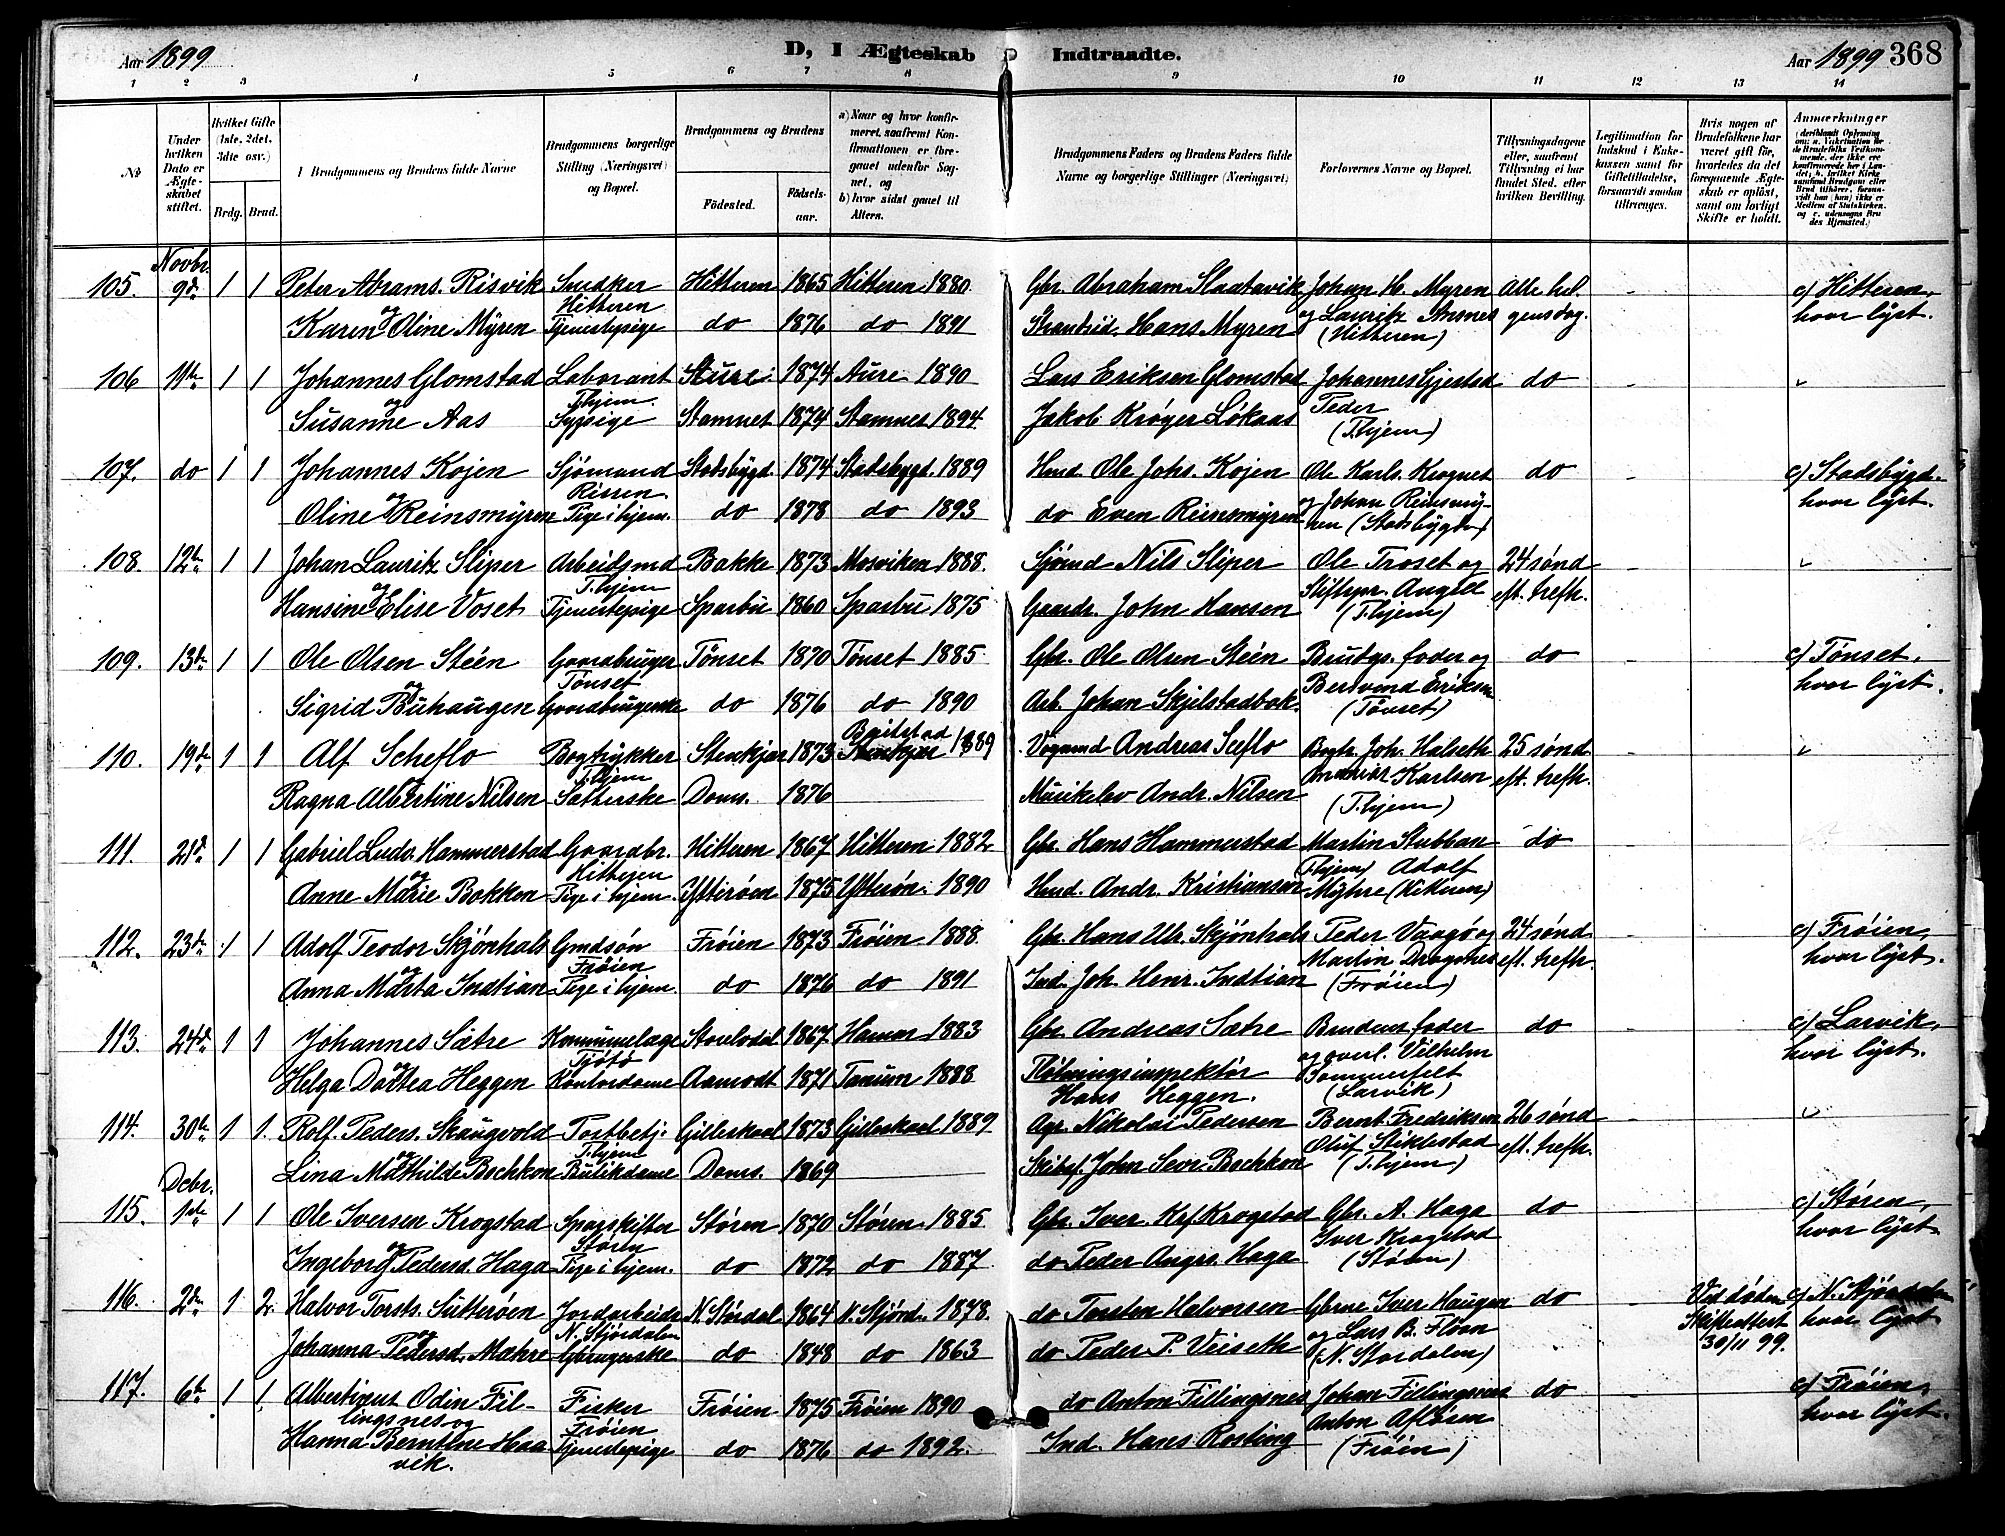 Aar 1899
D, I Ægteskab Indtraadte.
Aar 1899 368
1 2 3 4 5 6 7 8 9 10 11 12 13 14
№
Under hvilken Dato er Ægteskabet stiftet.
Hvilket Gifte (1ste, 2det, 3dte osv.)
Brdg. Brud.
Brudgommens og Brudens fulde Navne
Brudgommens borgerlige Stilling (Næringsvei) og Bopæl.
Brudgommens og Brudens
Fødested. Fødselsaar.
a) Naar og hvor konfirmeret, saafremt Konfirmationen er foregaaet udenfor Sognet, og
b) hvor sidst gaaet til Alters.
Brudgommens Faders og Brudens Faders fulde Navne og borgerlige Stillinger (Næringsvei)
Forlovernes Navne og Bopæl.
Tillysningsdagene eller, saafremt Tillysning ei har fundet Sted, efter hvilken Bevilling.
Legitimation for Indskud i Enkekassen samt for Giftetilladelse, forsaavidt saadan tiltrænges.
Hvis nogen af Brudefolkene har været gift før, hvorledes da det foregaaende Ægteskab er opløst, samt om lovligt Skifte er holdt.
Anmærkninger
Novbr.
105. 9de 1 1 Peter Abrams. Risvik Snedker Hitteren 1865 Hitteren 1880 Gbr. Abraham Slaatavik Johan H. Myren Alle hel. - c) Hitteren,
og Hitteren
Karen Oline Myren Tjenestepige do 1876 do 1891 Strandsid. Hans Myren og Lauritz Ansnes gensdag. hvor lyst.
(Hitteren)
106 11te 1 1 Johannes Glomstad Laborant Aure 1874 Aure 1890 Lars Eriksen Glomstad Johannes Gjestad do -
og T.hjem. Peder
Susanne Aas Sypige Stamnes 1874 Stamnes 1894 Jakob Krøger Løkaas (T.hjem)
107. do 1 1 Johannes Kojen Sjömand Stadsbygd. 1874 Stadsbygd. 1889 Hmd. Ole Johs. Kojen Ole Karls. Krognes do - c) Stadsbygd.
og Rissen og Johan Reinsmy- hvor lyst.
Oline Reinsmyren Pige i hjem. do 1878 do 1893 do Even Reinsmyren ren (Stadsbygden)
108. 12te 1 1 Johan Lauritz Sliper Arbeidsmd Bakke 1873 Mosviken 1888. Sjømd Nils Sliper Ole Troset og 24 sønd -
og T.hjem Stiftspr. Angell eft. trefh.
Hansine Elise Voset Tjenestepige Sparbu 1860 Sparbu 1875 Gaardr. John Hansen (T.hjem)
109. 13de 1 1 Ole Olsen Stéen Gaardbruger Tönset 1870 Tönset 1885 Gbr. Ole Olsen Stéen Brudgs. fader og do - c) Tönset,
og Tönset Bersvend Eriksen hvor lyst.
Sigrid Buhaugen Gaardbrugerske do 1876 do 1890 Arb. Johan Skjelstadbak. (Tönset)
Beitstad
110. 19de 1 1 Alf Scheflo Bogtrykker Stenkjær 1873 Stenkjær 1889 Vognmd Andreas Sceflo Bogtr. Joh. Halseth 25 sønd -
T.hjem Karlsen eft. trefh.
Ragna Albertine Nilsen Sætterske Doms. 1876 Musikelev Andr. Nilsen (T.hjem)
111. 21de 1 1 Gabriel Ludv. Hammerstad Gaardbr. Hitteren 1867 Hitteren 1882 Gbr. Hans Hammerstad Martin Stubban do
og (T.hjem) Adolf
Anne Marie Bakken Pige i hjem. Ytterøen 1875 Ytterøn. 1890 Hmd. Andr. Kristiansen Myhre (Hitteren)
112. 23de 1 1 Adolf Teodor Skjönhals Grndsön Frøien 1873 Frøien 1888. Gbr. Hans Ulr. Skjönhals Peder Vaagø og 24 sønd - c) Frøien,
og Frøien Martin Dragsnes eft. trefh. hvor lyst.
Anna Marta Indtian Pige i hjem. do 1876 do 1891 Ind. Joh. Henr. Indtian (Frøien)
113. 24de 1 1 Johannes Sætre Kommunelæge Storelvdal 1867 Hamar 1883 Gbr. Andreas Sætre Brudens fader do - c) Larvik,
og Tjøtø og overl. Vilhelm hvor lyst.
Helga Dortea Heggen Kontordame Aamodt 1871 Tanum 1888 Fløtningsinspektör Sommerfelt
Hans Heggen. (Larvik)
114. 30te 1 1. Rolf Peders. Skaugvold Postbetj. Gilleskaal 1873 Gilleskaal 1889. Agr. Nikolai Pedersen Bernt Fredriksen 26 sønd -
og T.hjem Oluf Stiklestad eft. trefh.
Lina Mathilde Bochkon Butikdame Doms. 1869 Skibsf. John Sevr. Bochkon (T.hjem)
Dcbr.
115. 1ste 1 1 Ole Iversen Krogstad Sporskifter Støren 1870 Støren 1885 Gbr. Iver Krf Krogstad Gbr. A. Haga do - c) Støren,
og Støren Iver Krogstad hvor lyst.
Ingeborg Pedersd. Haga Pige i hjem. do 1872 do 1887 do Peder Angrs. Haga (Støren)
116. 2den 1 2. Halvor Torsts. Sutterøen Jordarbeider N. Stördal 1864 N. Stjörd. 1878. do Torsten Halvorsen Gbrne Iver Haugen do - Ved døden c) N. Stjördalen
og N. Stjørdalen og Lars B. Floan Skifteattest hvor lyst
Johanna Pedersd. Mæhre Gbrugerske do 1848 do 1863 do Peder P. Veiseth (N. Stordalen) 30/11 99.
117. 6te 1 1 Albertinus Odin Fil- Fisker Frøien 1875 Frøien 1890 do Anton Fillingsnes Johan Fillingsnes do - c) Frøien,
lingsnes og Frøien Anton Afløien hvor lyst.
Hanna Berntine Haa- Tjenestepige do 1876 do 1892. Ind. Hans Rosting (Frøien)
vik.